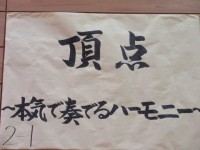 頂点
～本気で奏でるハーモニー～
2-1